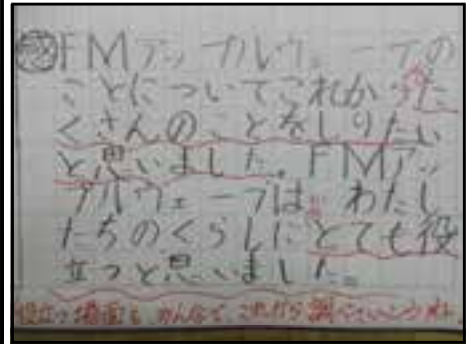 FMアップルウェーブの
ことについてこれからた
くさんのことをしりたい
と思いました。FMアッ
プルウェーブは、わたし
たちのくらしにとても役
立つと思いました。
役立つ場面も、みんなで、これから調べていこうね。